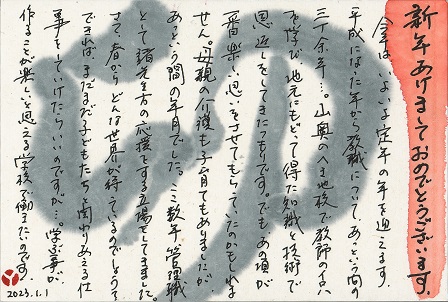 新年あけましておめでとうございます。
今年は、いよいよ定年の年を迎えます。
平成になった年から教職について、あっという間の
三十余年…。山奥の人里地校で教師のイロハ
を学び、地元にもどって得た知識と技術で
恩返しをしてきたつもりです。でもあの頃が
一番楽しい思いをさせてもらっていたのかもしれま
せん。母親の介護も子育てもありましたが、
あっという間の年月でした。ここ数年管理職
として諸先生方の応援をする立場をしてきました。
さて、春からどんな世界が待っているのでしょう。
できれば、まだまだ子どもたちと関わりあえる仕
事をしていけたらいいのですが…。学ぶ事が、
作ることが楽しいと思える学校で働きたいのです。
2023.1.1